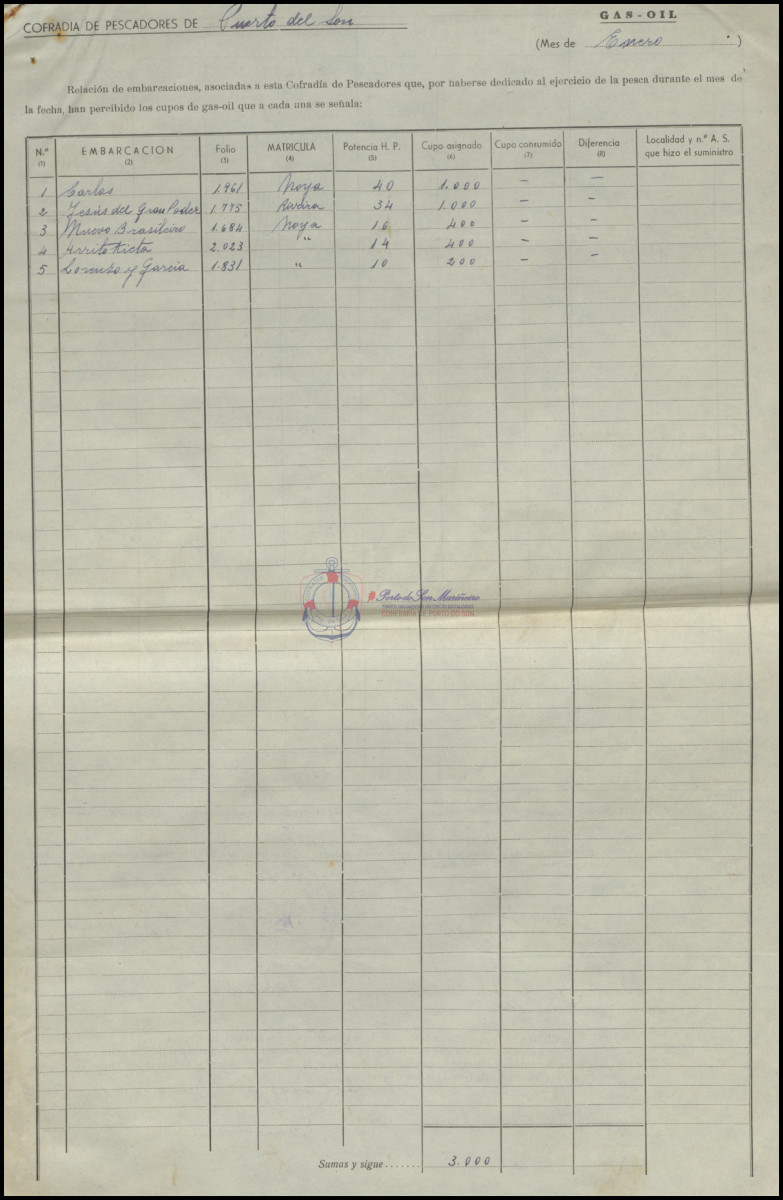 GAS-OIL
COFRADIA DE PESCADORES DE Puerto del Son
(Mes de Enero )
Relación de embarcaciones, asociadas a esta Cofradía de Pescadores que, por haberse dedicado al ejercicio de la pesca durante el mes de
la fecha, han percibido los cupos de gas-oil que a cada una se señala:
N.º (1) EMBARCACION (2) Folio (3) MATRICULA (4) Potencia H. P. (5) Cupo asignado (6) Cupo consumido (7) Diferencia (8) Localidad y n.º A. S. que hizo el suministro
1 Carlos 1.961 Noya 40 1.000 — —
2 Jesús del Gran Poder 1.775 Riveira 34 1.000 — —
3 Nuevo Brasileiro 1.684 Noya 16 400 — —
4 2.023 " 14 400 — —
5 Lorenzo y García 1.831 " 10 200 — —
Porto do Son Mariñeiro
CONFRARÍA DE PORTO DO SON
Sumas y sigue....... 3.000